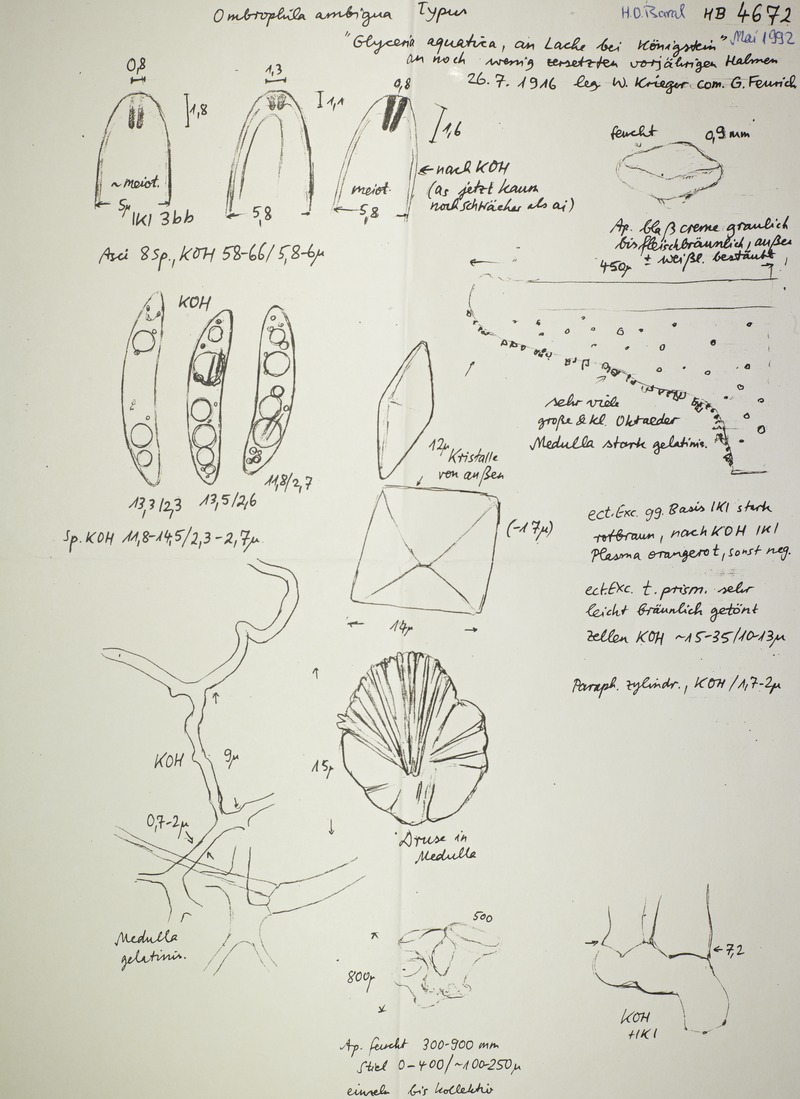 Ombrophila ambigua Typus
H.O. Baral HB 4672
"Glyceria aquatica, an Lache bei Königstein" Mai 1992
an noch wenig zersetzten vorjährigen Halmen
26.7.1916 leg. W. Krieger com. G. Feurich
0,8
1,8
1,3
1,1
0,8
1,6
~meist.
5µ
IKI 3bb
5,8
meist.
5,8
←nach KOH
(as jetzt kaum
noch schwächer als ai)
Asci 8 Sp., KOH 58-66/5,8-6µ
feucht 0,9 mm
Ap. blaß creme graulich
bis fleischbräunlich, außen
± weißl. bestäubt
450µ
KOH
13,3/2,3
13,5/2,6
11,8/2,7
Sp. KOH 11,8-14,5/2,3-2,7µ
12µ
Kristalle
von außen
(-17µ)
14µ
sehr viele
große & kl. Oktaeder
Medulla stark gelatinis.
ect.Exc. gg. Basis IKI stark
rotbraun, nach KOH IKI
Plasma orangerot, sonst neg.
ect.Exc. t. prism. sehr
leicht bräunlich getönt
Zellen KOH ~15-35/10-13µ
Paraph. zylindr., KOH /1,7-2µ
KOH
9µ
0,7-2µ
Medulla
gelatinis.
15µ
Druse in
Medulla
500
800µ
Ap. feucht 300-900 mm
Stiel 0-400/~100-250µ
einzeln bis kollektiv
7,2
KOH
+IKI